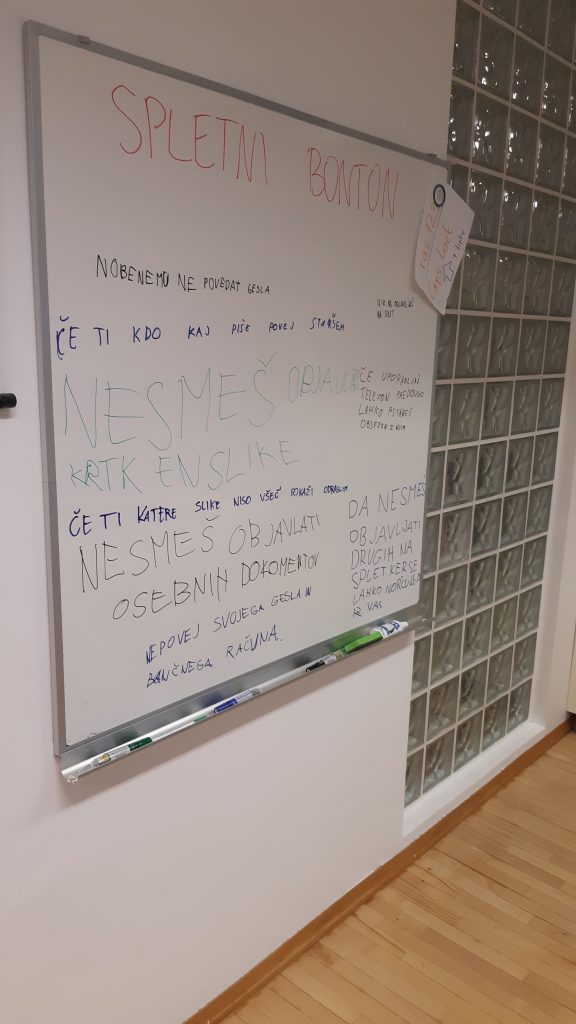 SPLETNI BONTON
NOBENEMU NE POVEDAT GESLA
ČE TI KDO KAJ PIŠE POVEJ STARŠEM
NESMEŠ OBJAVLAT
KRTK EN SLIKE
ČE TI KATERE SLIKE NISO VŠEČ POKAŽI ODRASLIM
NESMEŠ OBJAVLATI
OSEBNIH DOKOMENTOV
NEPOVEJ SVOJEGA GESLA IN
BANČNEGA RAČUNA.
SLIK NE OBJAVLJAŠ
NA SPLET.
ČE UPORABLJAŠ
TELEFON PREDOUGO
LAHKO POSTANEŠ
OBSEDEN Z NJIM
DA NESMEŠ
OBJAVLJATI
DRUGIH NA
SPLET KER SE
LAHKO NORČUJEJO
IZ VAS
Caps Lock